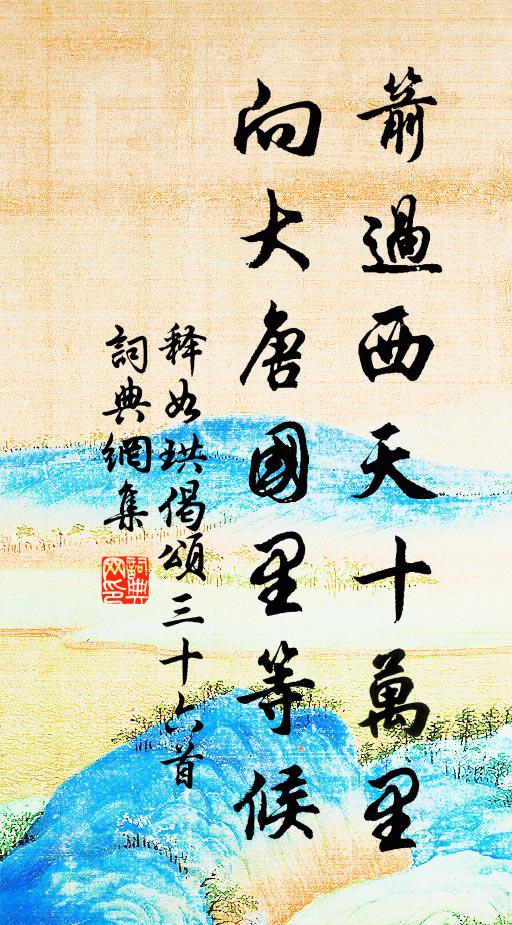 箭過西天十萬里
向大唐國里等候
释如珙偈頌三十六首
詞典網集
詞典网印